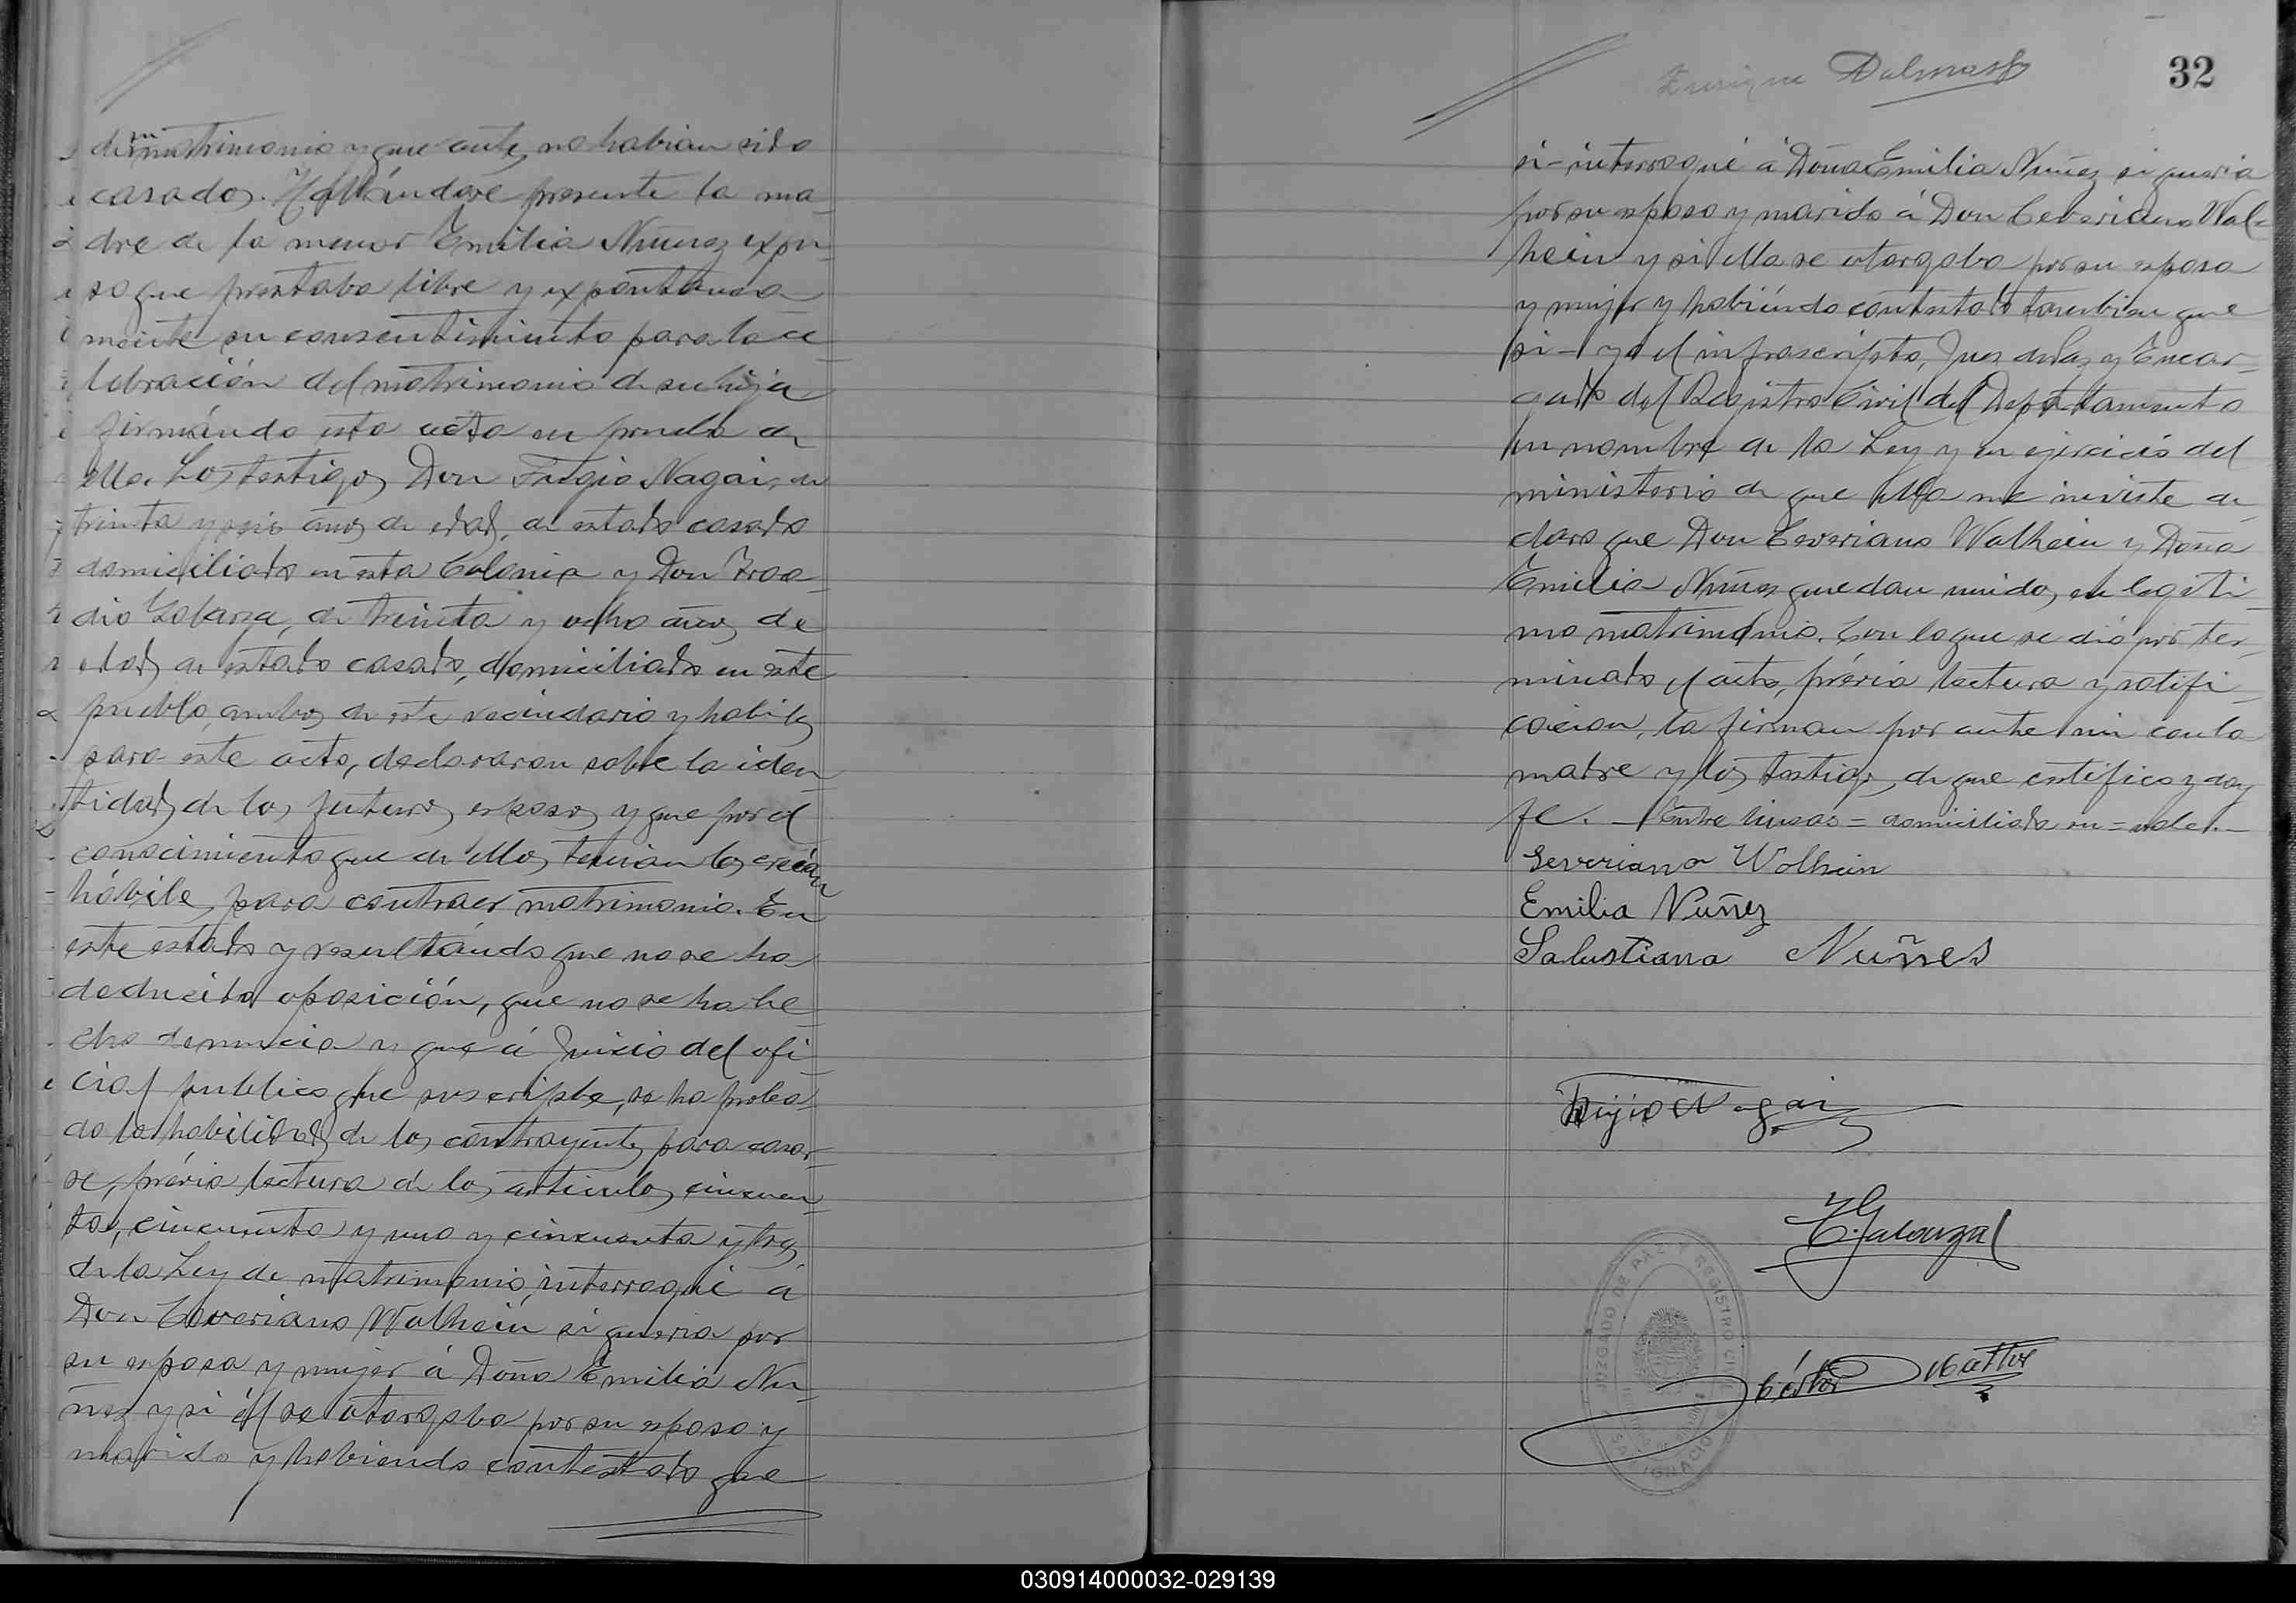 de matrimonio y que antes no habian sido
casados. Hallándose presente la ma-
dre de la menor Emilia Nuñez expu-
so que prestaba libre y expontanea
mente su consentimiento para la ce-
lebración del matrimonio de su hija
firmándo esta acta en prueba de
ello. Los testigos Don Nagai, de
treinta y seis años de edad, de estado casado
domiciliado en esta Colonia y Don
dio de treinta y ocho años de
edad, de estado casado, domiciliado en este
pueblo, ambos de este vecindario y habiles
para este acto, declararon sobre la iden-
tidad de los futuros esposos y que por el
conocimiento que de ellos tenian los creian
hábiles para contraer matrimonio. En
este estado y resultándo que no se ha
deducido oposición, que no se ha he-
cho denuncia y que á juicio del ofi-
cial publico que suscripbe, se ha proba-
do la habilidad de los contrayentes para casar-
se, prévia lectura de los articulos cincuen-
ta, cincuenta y uno y cincuenta y tres
de la Ley de matrimonio, interrogué á
Don Ceveriano Walhein si queria por
su esposa y mujer á Doña Emilia Nu-
ñez y si él se otorgaba por su esposo y
marido y habiendo contestado que
Enrique Dalmasso
32
si- interrogué á Doña Emilia Nuñez si queria
por su esposo y marido á Don Ceveriano Wal-
hein y si ella se otorgaba por su esposa
y mujer y habiéndo contestado tambien que
si- yo el infrascripto, Juez de Paz y Encar-
gado del Registro Civil del Departamento
en nombre de la Ley y en ejercicio del
ministerio de que ella me inviste de
claro que Don Ceveriano Walhein y Doña
Emilia Nuñez quedan unidos en legiti-
mo matrimonio. Con lo que se dió por ter-
minado el acto, prévia lectura y ratifi-
cacion, la firman por ante mi con la
madre y los testigos, de que certifico y doy
fe. - Entre lineas = domiciliado en = vale. -
Severiano Wolhein
Emilia Nuñez
Salustiana Nuñes
Nagai
JUZGADO DE PAZ Y REGISTRO CIVIL
SAN IGNACIO
030914000032-029139